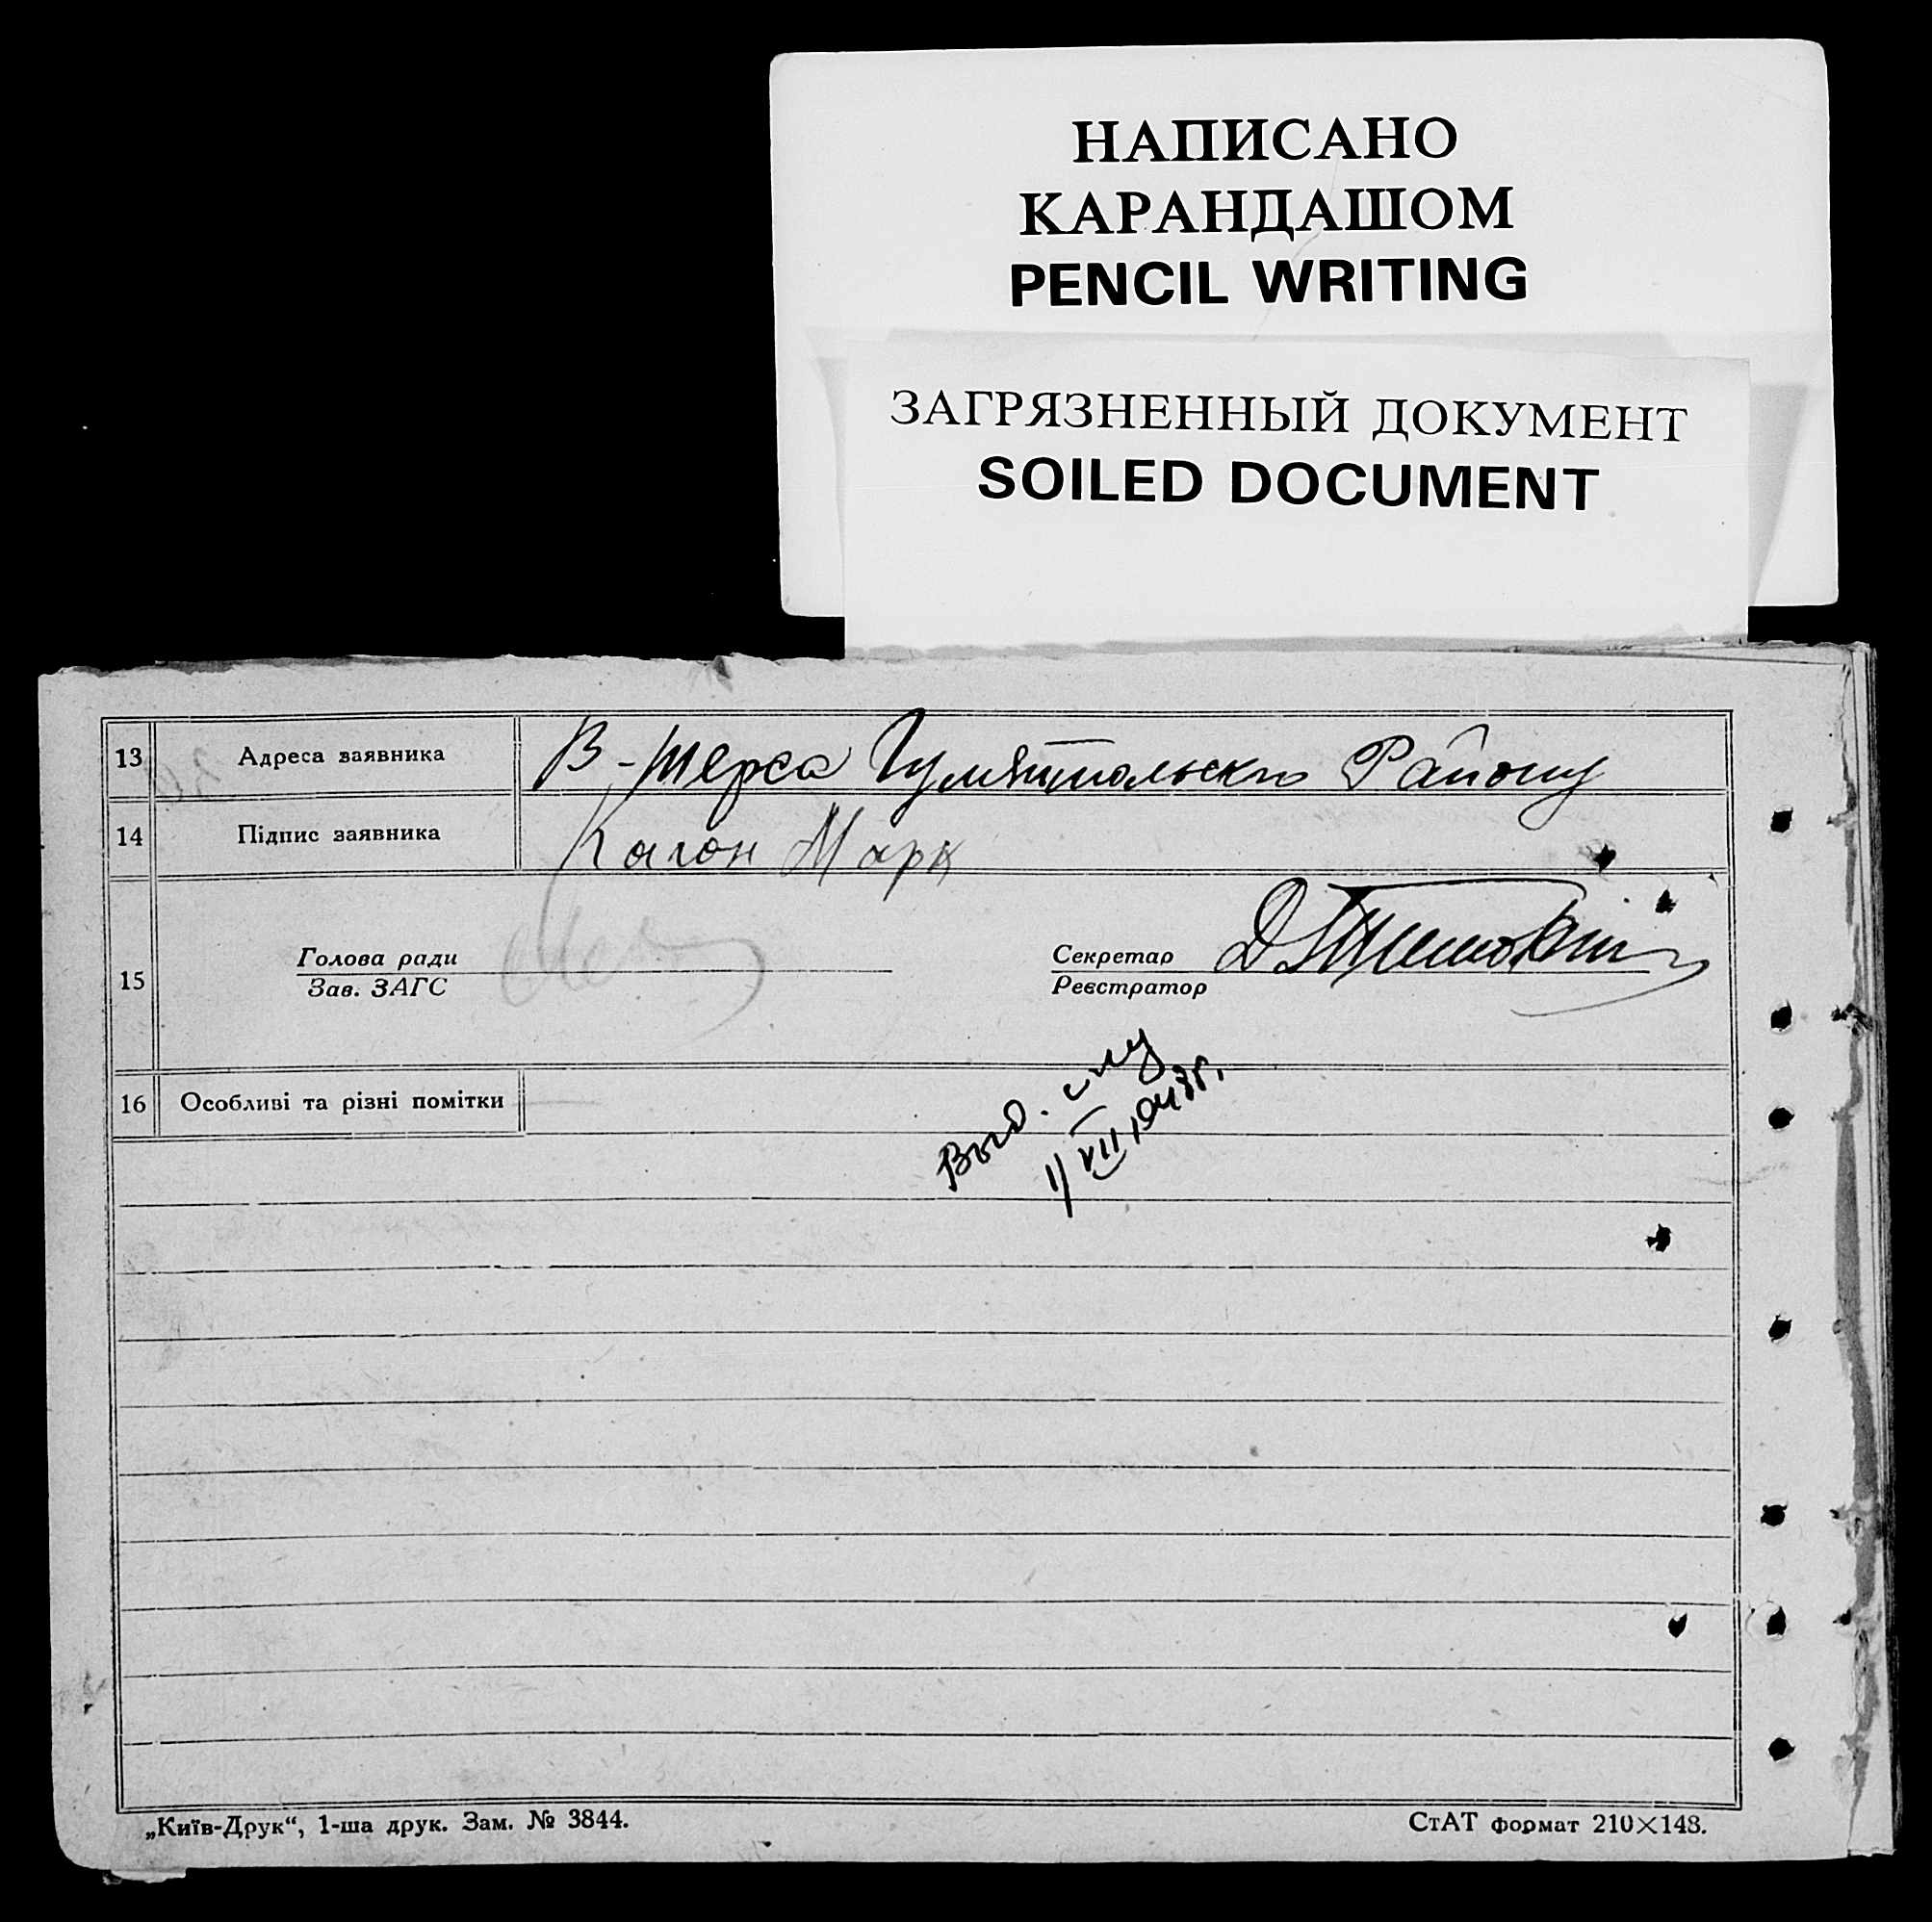 НАПИСАНО
КАРАНДАШОМ
PENCIL WRITING
ЗАГРЯЗНЕННЫЙ ДОКУМЕНТ
SOILED DOCUMENT
13 Адреса заявника В-Терса Району
14 Підпис заявника Каган Марк
15
Голова ради
Зав. ЗАГС
Секретар
Реєстратор
Выд.
1/VII 1948г.
16 Особливі та різні помітки
„Київ-Друк“, 1-ша друк. Зам. № 3844.
СтАТ формат 210×148.